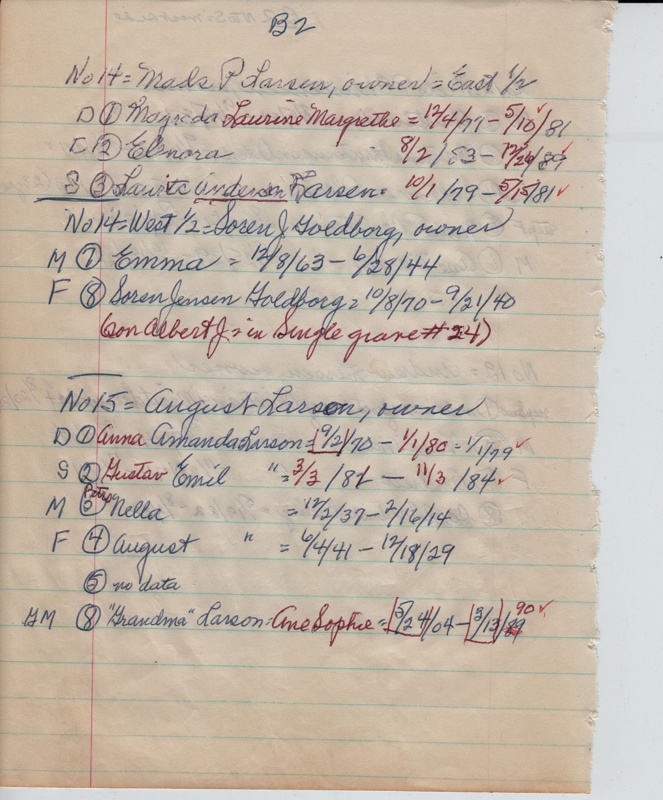 B2
No 14 = Mads P Larsen, owner = East 1/2
D ① Magreda Laurine Margrethe = 12/4/79 - 5/10/81 ✓
D ② Elenora 8/2/83 - 12/26/89 ✓
S ③ Laurits Anderson Larsen = 10/1/79 - 5/15/81 ✓
No 14 = West 1/2 = Soren J Goldborg, owner
M ⑦ Emma = 12/8/63 - 6/28/44
F ⑧ Soren Jensen Goldborg = 10/8/70 - 9/21/40
(son Albert J. = in Single grave # 24)
No 15 = August Larson, owner
D ① Anna Amanda Larson = 9/2/70 - 1/1/80 = 1/1/79 ✓
S ② Gustav Emil " = 3/3/82 - 11/3/84 ✓
M Petro Nella = 12/2/37 - 2/16/14
F ④ August " = 6/4/41 - 12/18/29
⑤ no data
GM ⑧ "Grandma" Larson - Ane Sophie = 5/24/04 - 3/13/89 90 ✓